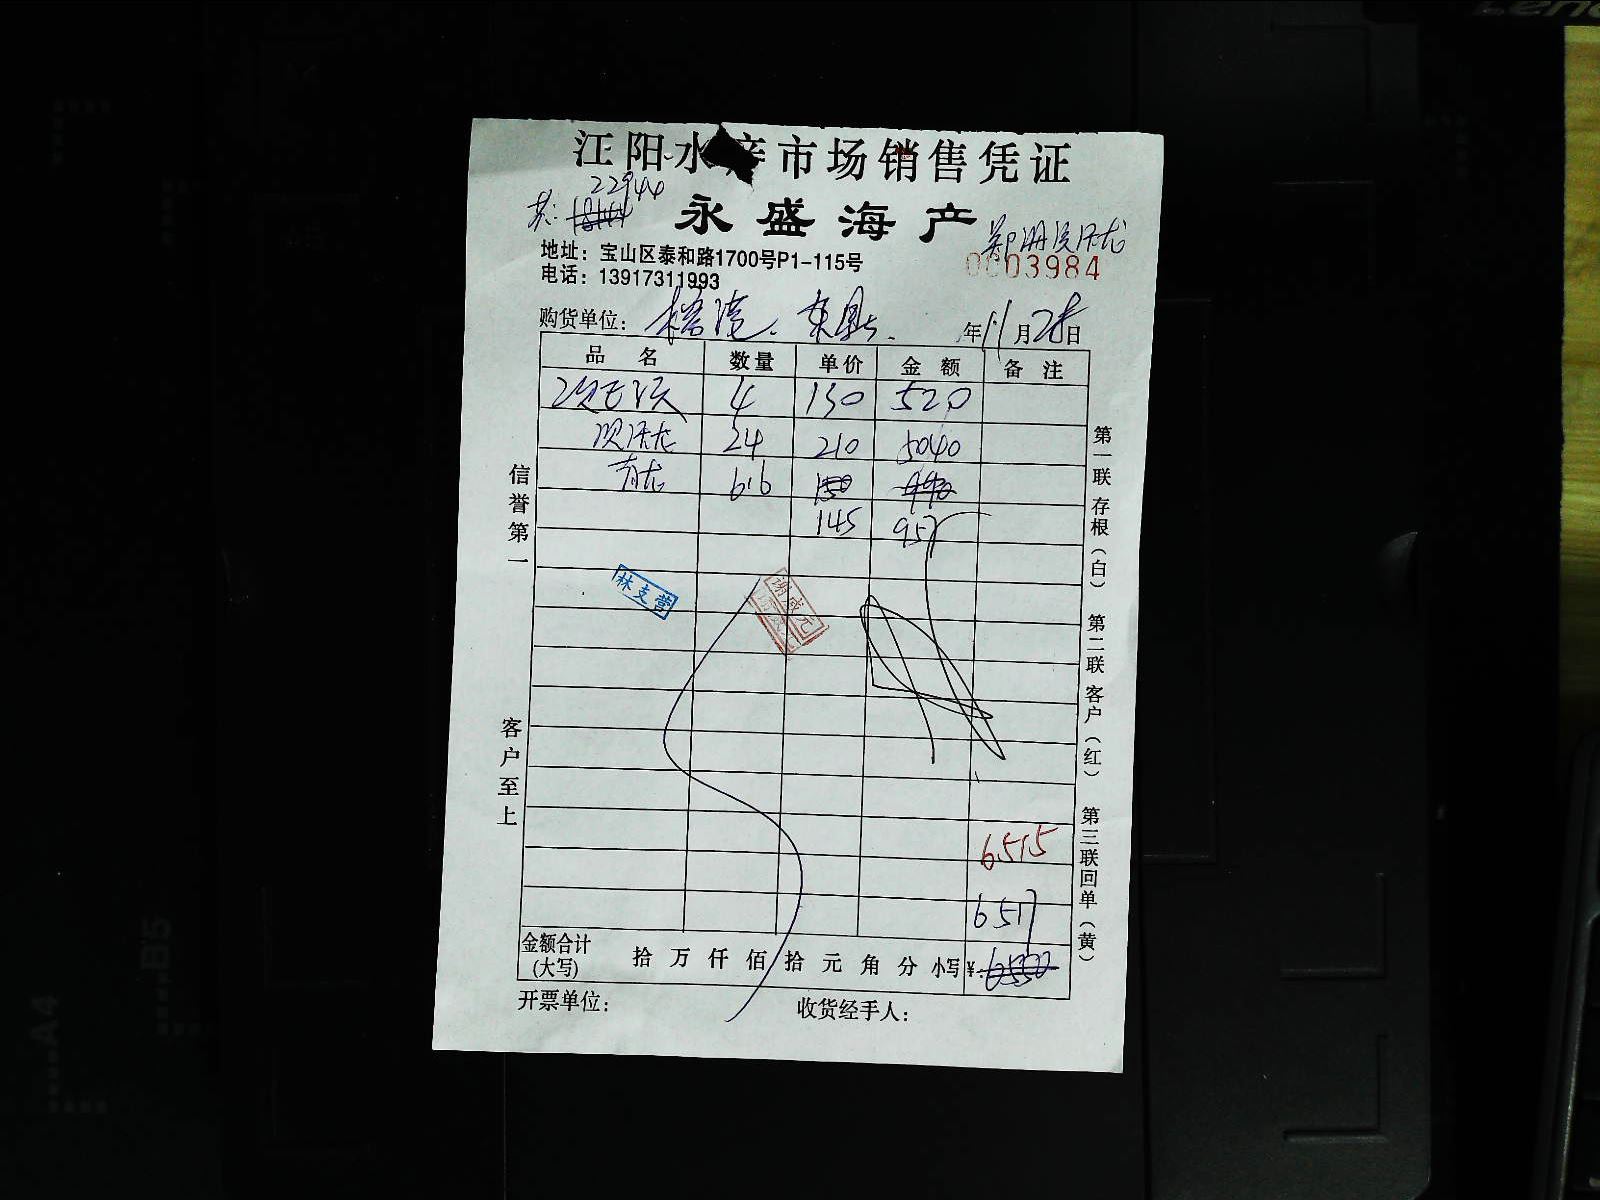 江阳水产市场销售凭证
22944
永盛海产
地址：宝山区泰和路1700号P1-115号
0003984
电话：13917311993
购货单位： 年11月28日
品 名 数量 单价 金 额 备 注
4 130 520
24 210 5040
青龙 6.6 150
145 957
林支营
谢盛元
信誉第一
客户至上
第一联 存根（白） 第二联 客户（红） 第三联回单（黄）
6515
6517
金额合计(大写) 拾 万 仟 佰 拾 元 角 分 小写 ¥: 6550
开票单位： 收货经手人：
Lenovo
B5
A4